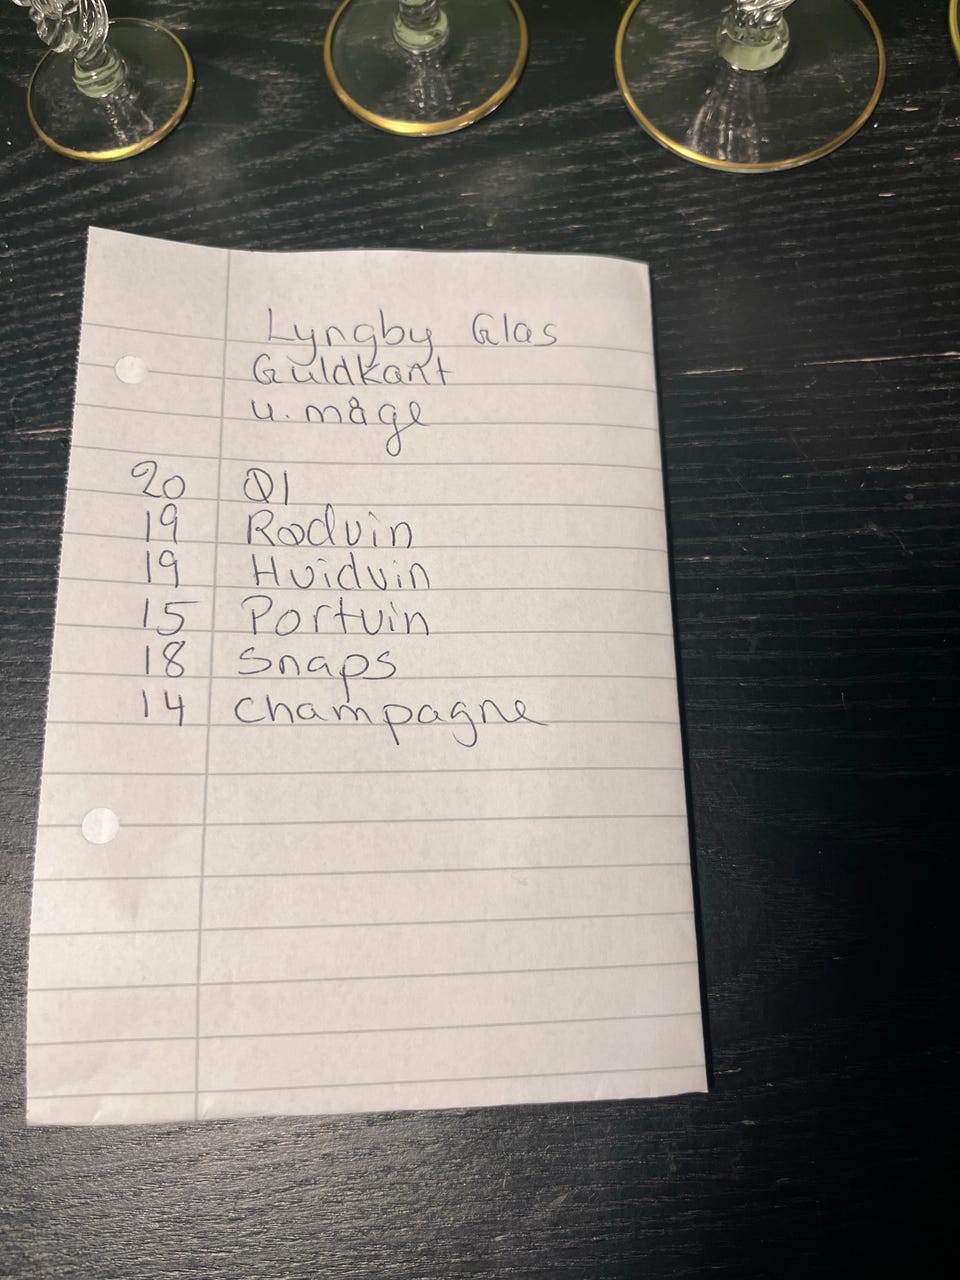 Lyngby Glas
Guldkant
u. måge
20 Øl
19 Rødvin
19 Hvidvin
15 Portvin
18 Snaps
14 Champagne